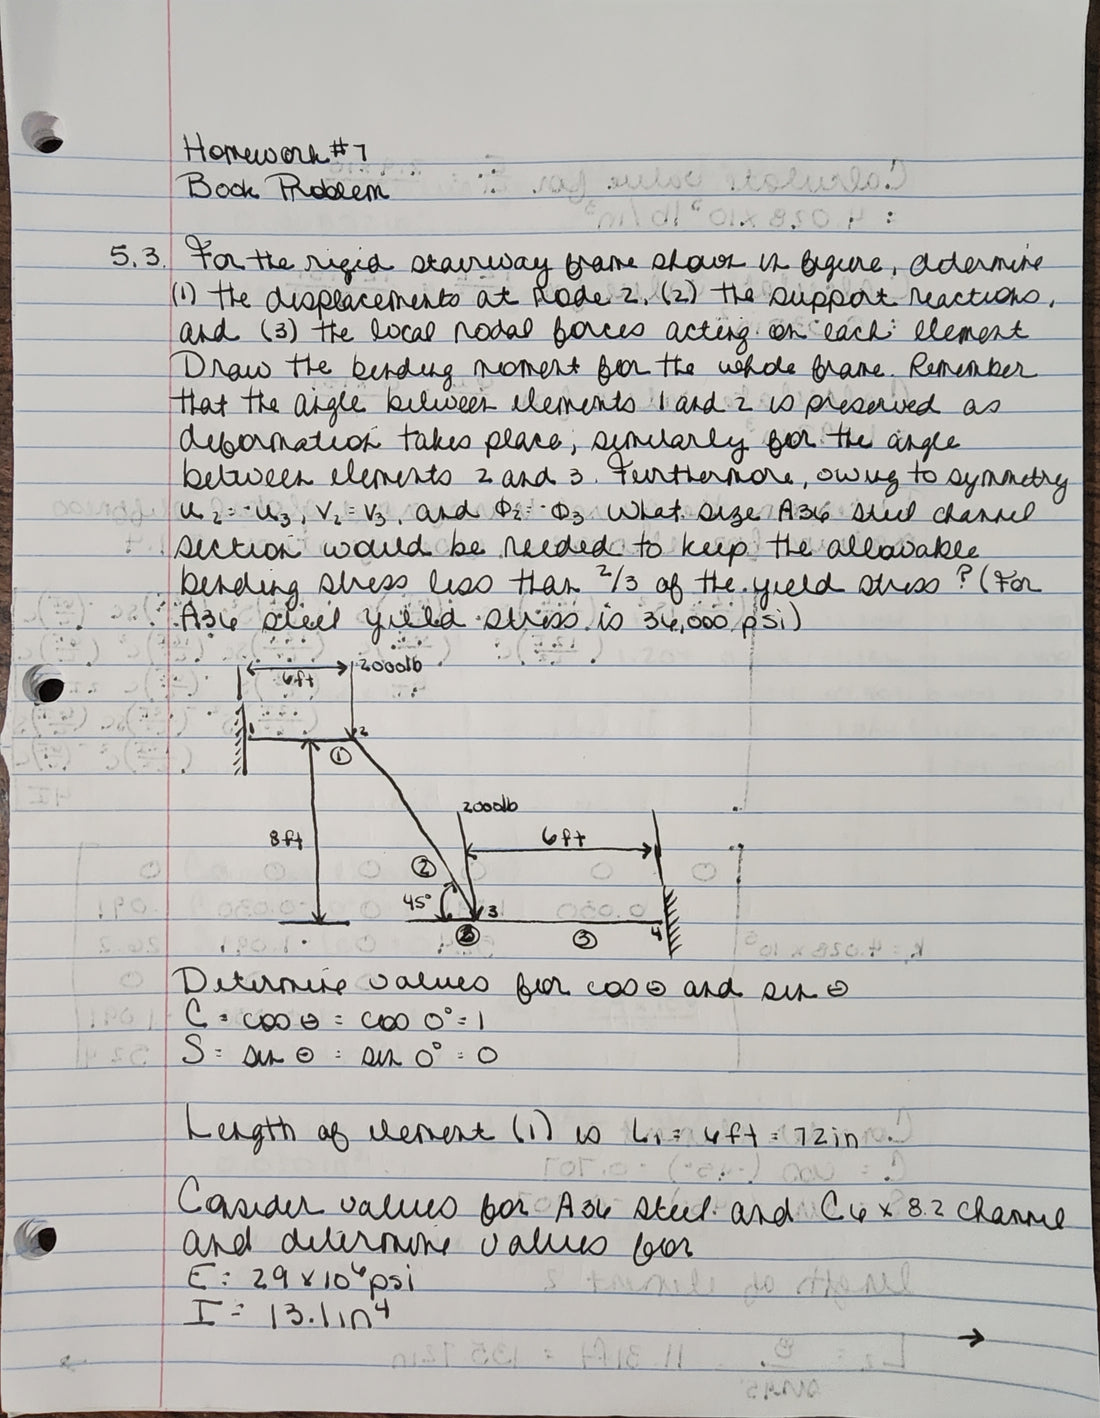 Homework #7
Book Problem
5.3. For the rigid stairway frame shown in figure, determine
(1) the displacements at node 2, (2) the support reactions,
and (3) the local nodal forces acting on each element
Draw the bending moment for the whole frame. Remember
that the angle between elements 1 and 2 is preserved as
deformation takes place; similarly for the angle
between elements 2 and 3. Furthermore, owing to symmetry
u₂ = -u₃, v₂ = v₃, and Φ₂ = Φ₃. What size A36 steel channel
section would be needed to keep the allowable
bending stress less than 2/3 of the yield stress? (For
A36 steel yield stress is 36,000 psi)
6ft 2000lb
1 2
①
2000lb
8ft 6ft
②
45° 3
③ 4
Determine values for cos θ and sin θ
C = cos θ = cos 0° = 1
S = sin θ = sin 0° = 0
Length of element (1) is L₁ = 6ft = 72in
Consider values for A36 steel and C6 x 8.2 channel
and determine values for
E = 29 x 10⁶ psi
I = 13.1 in⁴
→